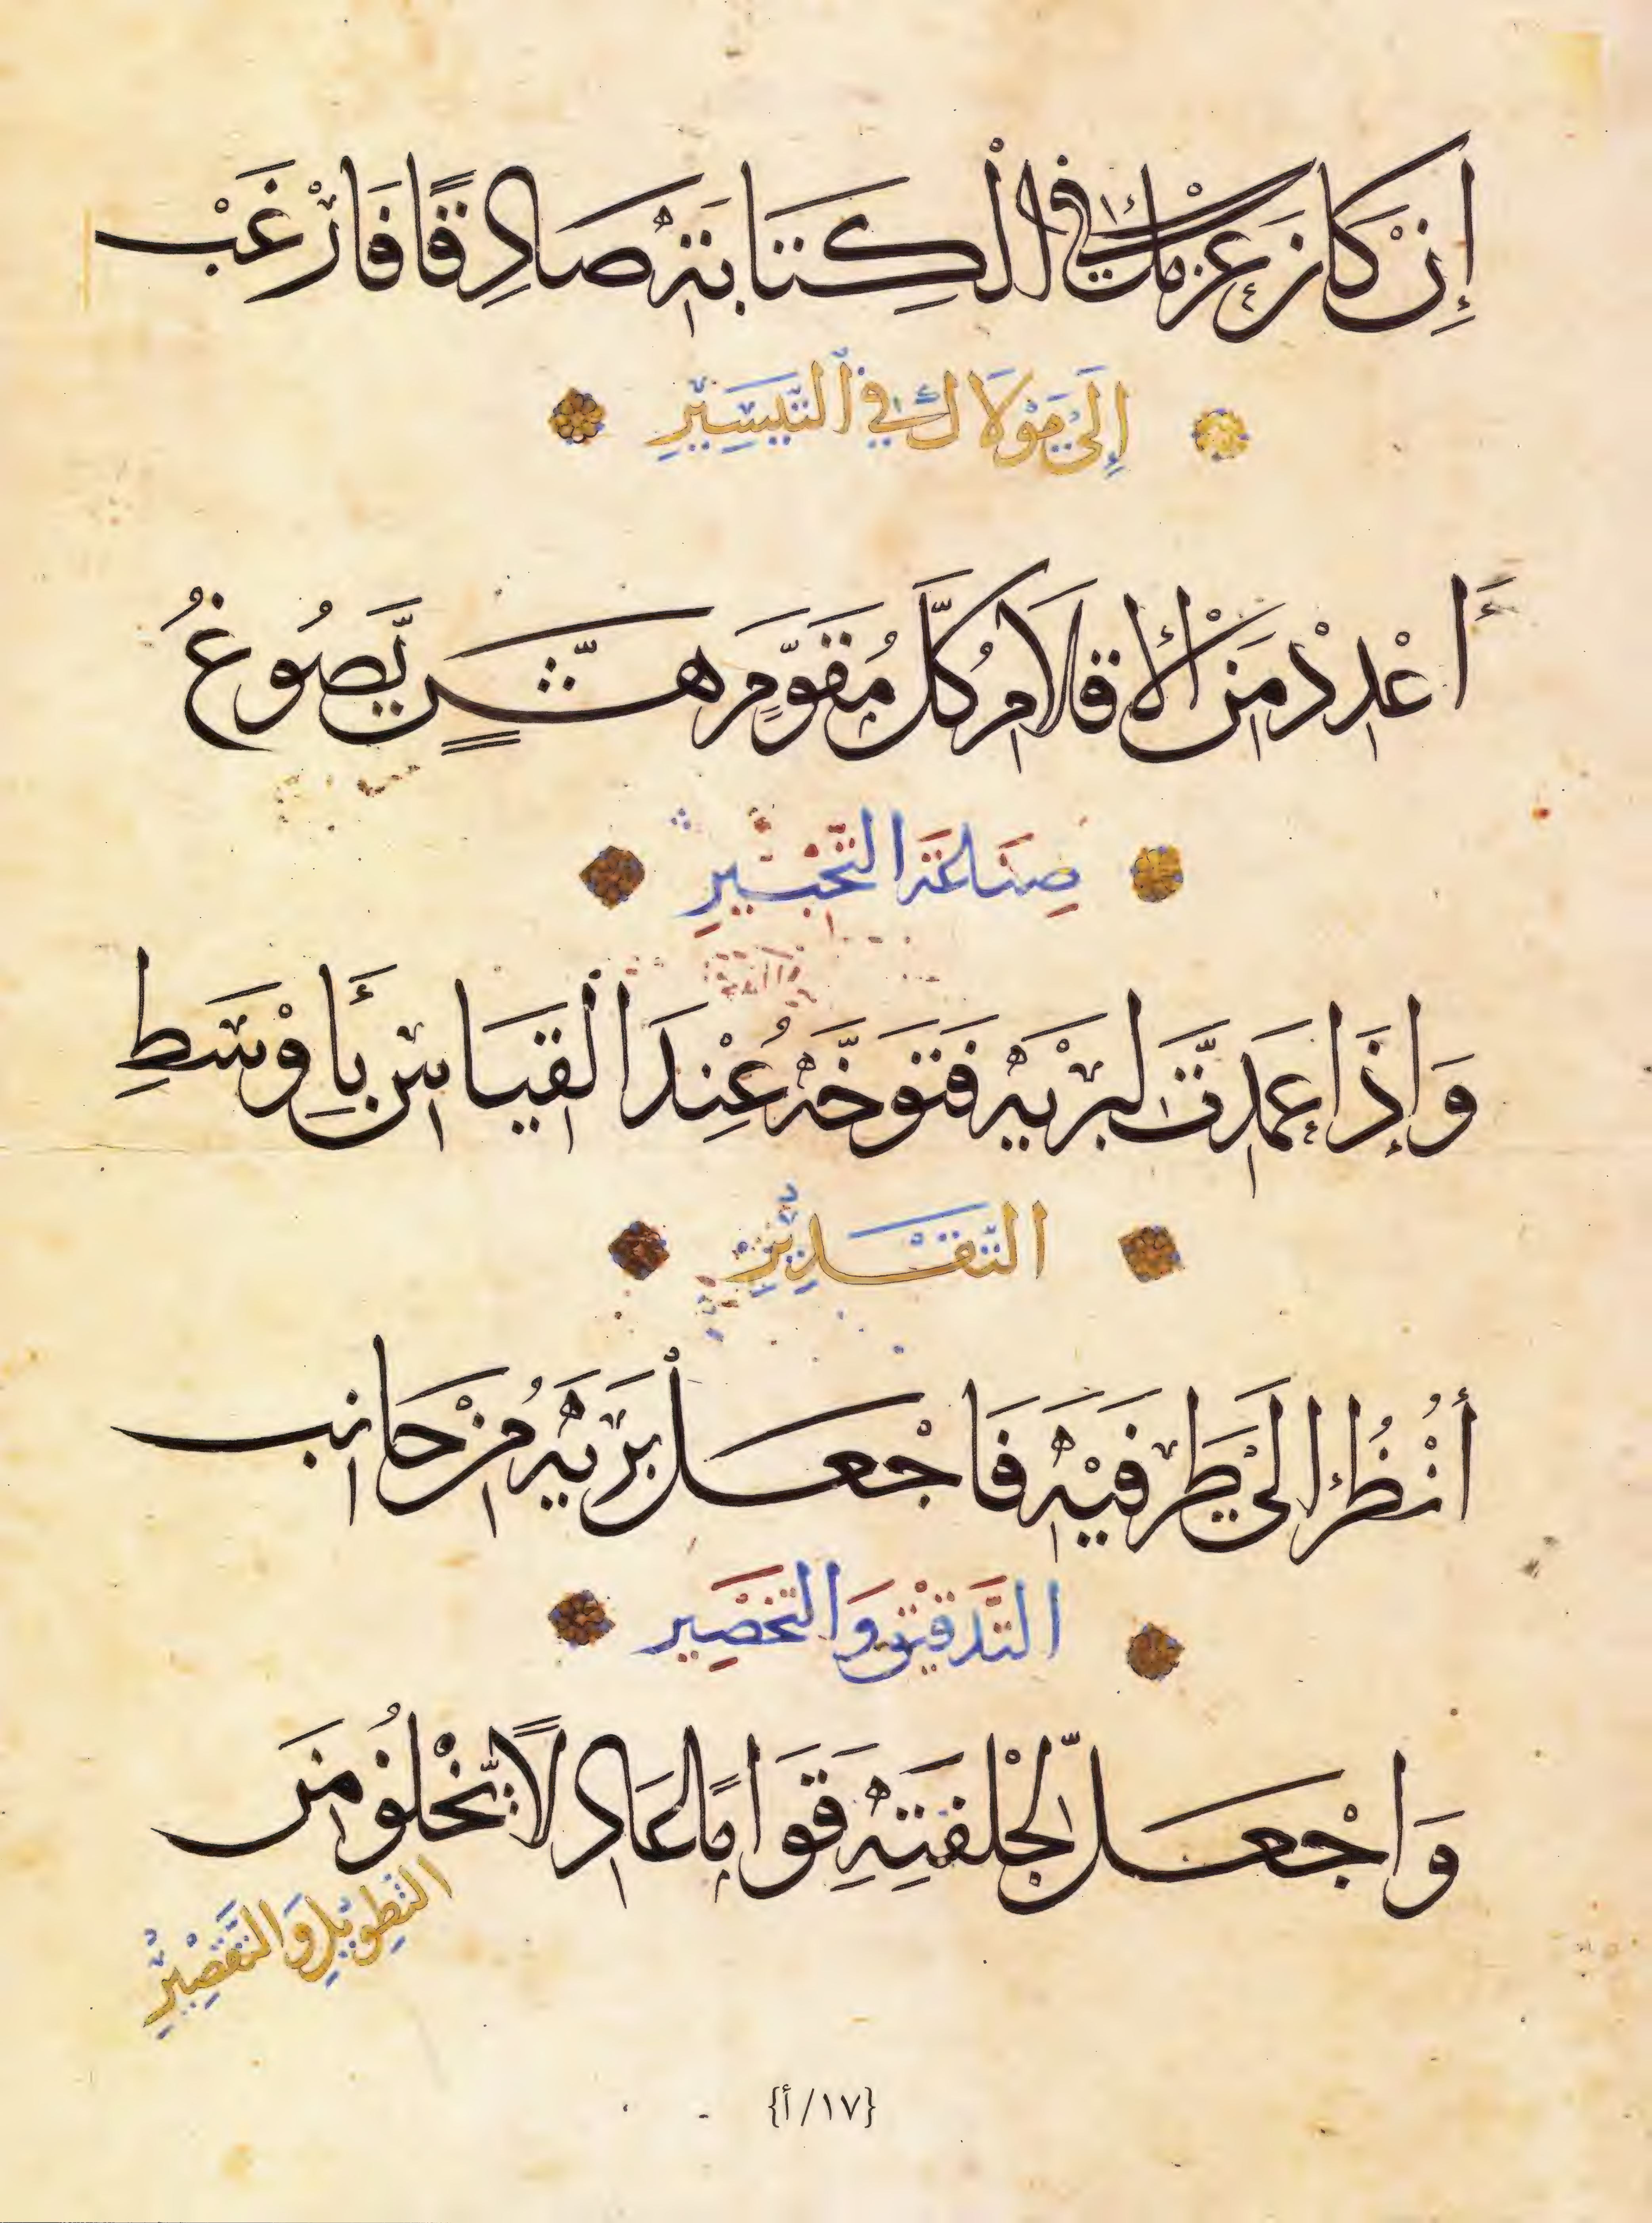 إِنْ كَانَ عَزْمُكَ فِي الْكِتَابَةِ صَادِقًا فَارْغَبْ
إِلَى مَوْلَاكَ فِي التَّيْسِيرِ
أَعْدِدْ مِنَ الْأَقْلَامِ كُلَّ مُقَوَّمٍ يَصُوغُ
صِنَاعَةَ التَّحْبِيرِ
وَإِذَا عَمَدْتَ لِبَرْيِهِ فَتَوَخَّهُ عِنْدَ الْقِيَاسِ بِأَوْسَطِ
التَّقْدِيرِ
أُنْظُرْ إِلَى طَرَفَيْهِ فَاجْعَلْ بَرْيَهُ مِنْ جَانِبِ
التَّدْقِيقِ وَالتَّخْصِيرِ
وَاجْعَلْ لِجِلْفَتِهِ قَوَامًا عَادِلًا يَخْلُو مِنَ
التَّطْوِيلِ وَالتَّقْصِيرِ
{١٧/أ}